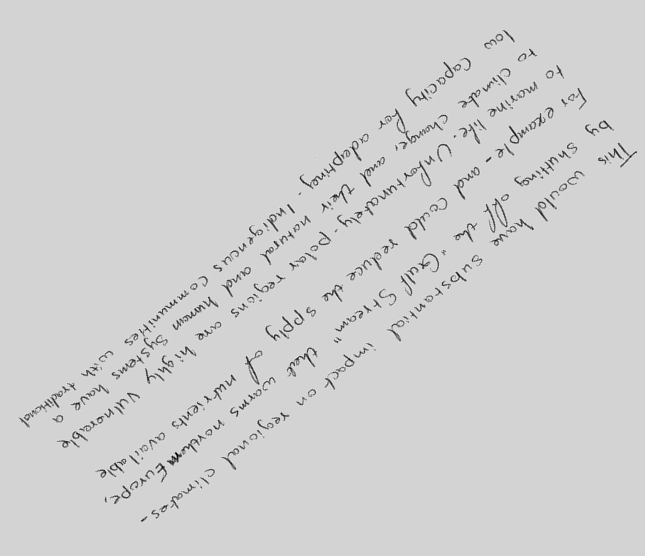 This would have substantial impact on regional climates-
by shutting off the "Gulf Stream" that warms northern Europe,
for example- and could reduce the spply of nutrients available
to marine life. Unfortunately- polar regions are highly vulnerable
to climate change, and their natural and human systems have a
low capacity for adapting. Indigenous communities with traditional